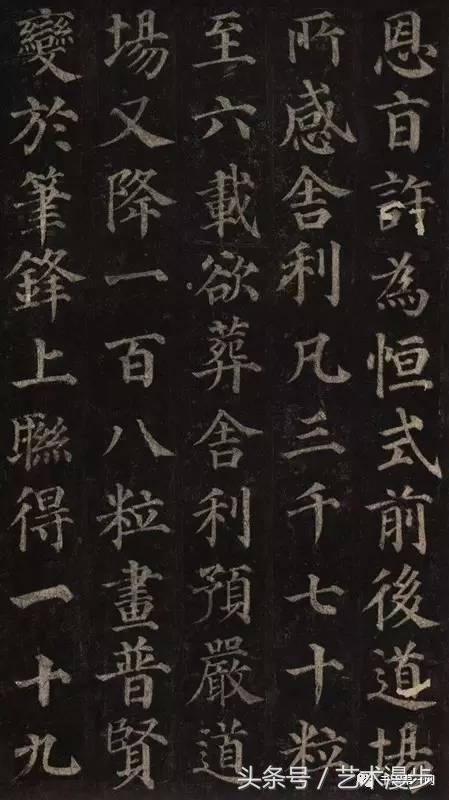 恩旨許為恒式前後道場
所感舍利凡三千七十粒
至六載欲葬舍利預嚴道
場又降一百八粒畫普賢
變於筆鋒上聯得一十九
头条号／艺术漫步